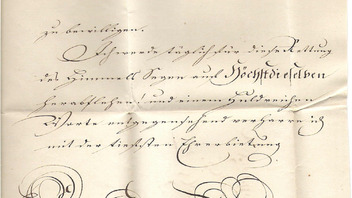 zu bewilligen.
Ich werde täglich für diese Rettung
des Himmels Segen auf Höchstdieselben
herabflehen! und einem Huldreichen
Worte entgegensehend verharre ich
mit der tiefsten Ehrerbietung